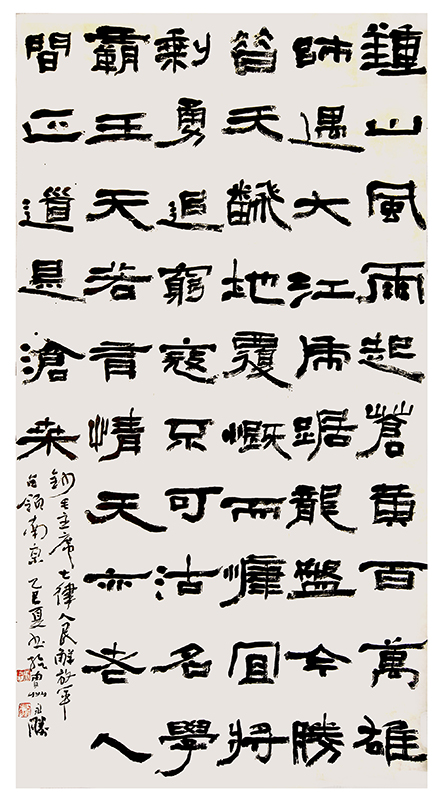 鍾山風雨起蒼黄百萬雄
師過大江虎踞龍盤今勝
昔天翻地覆慨而慷宜將
剩勇追窮寇不可沽名學
霸王天若有情天亦老人
間正道是滄桑
錄毛主席七律人民解放軍
占領南京 乙巳夏